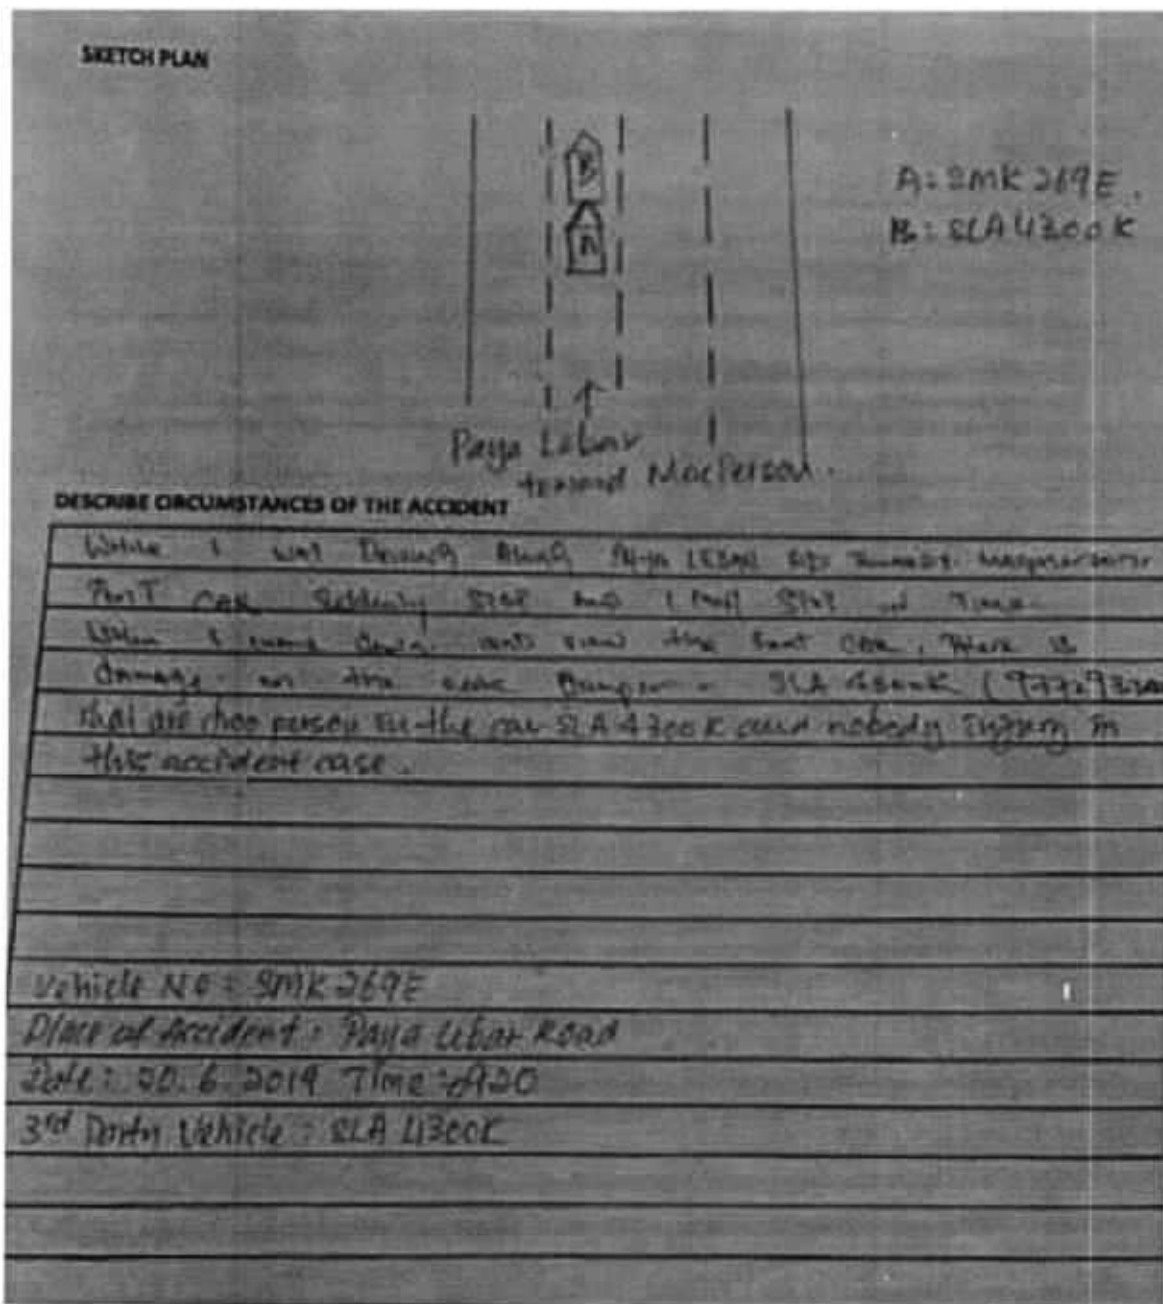 SKETCH PLAN
B
A
A: SMK 269E.
B: SLA 4300K
Paya Lebar
toward MacPerson.
DESCRIBE CIRCUMSTANCES OF THE ACCIDENT
While I was Driving Along Paya LEBAR
CAR Suddenly STOP AND I STOP TIME.
When I came down and view the font CAR, there is
damage on the Bumper - SLA 4300K
person in the car SLA 4300K and nobody injury in
this accident case.
Vehicle NO : SMK 269E
Place of Accident : Paya Lebar Road
Date : 20.6.2019 Time : 0920
3rd Party Vehicle : SLA 4300K